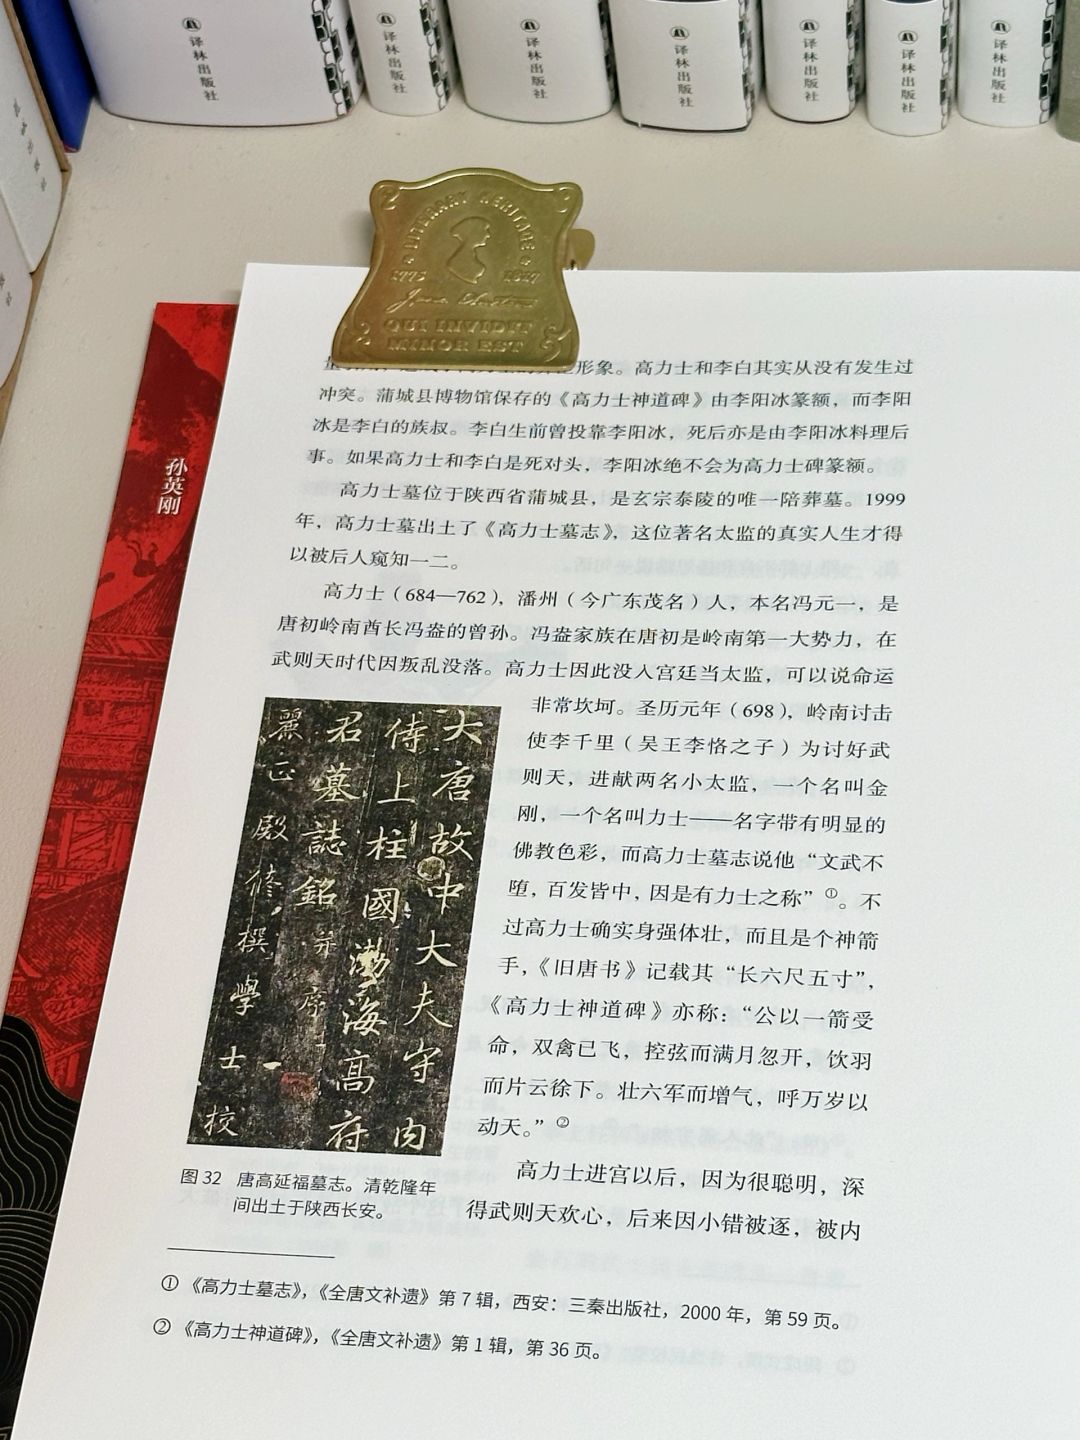 译林出版社
译林出版社
译林出版社
译林出版社
译林出版社
译林出版社
译林出版社
LITERARY HERITAGE
1775 1817
Jane Austen
QUI INVIDIT
MINOR EST
孙英刚
形象。高力士和李白其实从没有发生过
冲突。蒲城县博物馆保存的《高力士神道碑》由李阳冰篆额，而李阳
冰是李白的族叔。李白生前曾投靠李阳冰，死后亦是由李阳冰料理后
事。如果高力士和李白是死对头，李阳冰绝不会为高力士碑篆额。
高力士墓位于陕西省蒲城县，是玄宗泰陵的唯一陪葬墓。1999
年，高力士墓出土了《高力士墓志》，这位著名太监的真实人生才得
以被后人窥知一二。
高力士（684—762），潘州（今广东茂名）人，本名冯元一，是
唐初岭南酋长冯盎的曾孙。冯盎家族在唐初是岭南第一大势力，在
武则天时代因叛乱没落。高力士因此没入宫廷当太监，可以说命运
非常坎坷。圣历元年（698），岭南讨击
使李千里（吴王李恪之子）为讨好武
则天，进献两名小太监，一个名叫金
刚，一个名叫力士——名字带有明显的
佛教色彩，而高力士墓志说他“文武不
堕，百发皆中，因是有力士之称”①。不
过高力士确实身强体壮，而且是个神箭
手，《旧唐书》记载其“长六尺五寸”，
《高力士神道碑》亦称：“公以一箭受
命，双禽已飞，控弦而满月忽开，饮羽
而片云徐下。壮六军而增气，呼万岁以
动天。”②
高力士进宫以后，因为很聪明，深
得武则天欢心，后来因小错被逐，被内
大唐故中大夫守内
侍上柱國渤海高府
君墓誌銘并序
麗正殿修撰學士校
图 32 唐高延福墓志。清乾隆年
间出土于陕西长安。
① 《高力士墓志》，《全唐文补遗》第 7 辑，西安：三秦出版社，2000 年，第 59 页。
② 《高力士神道碑》，《全唐文补遗》第 1 辑，第 36 页。